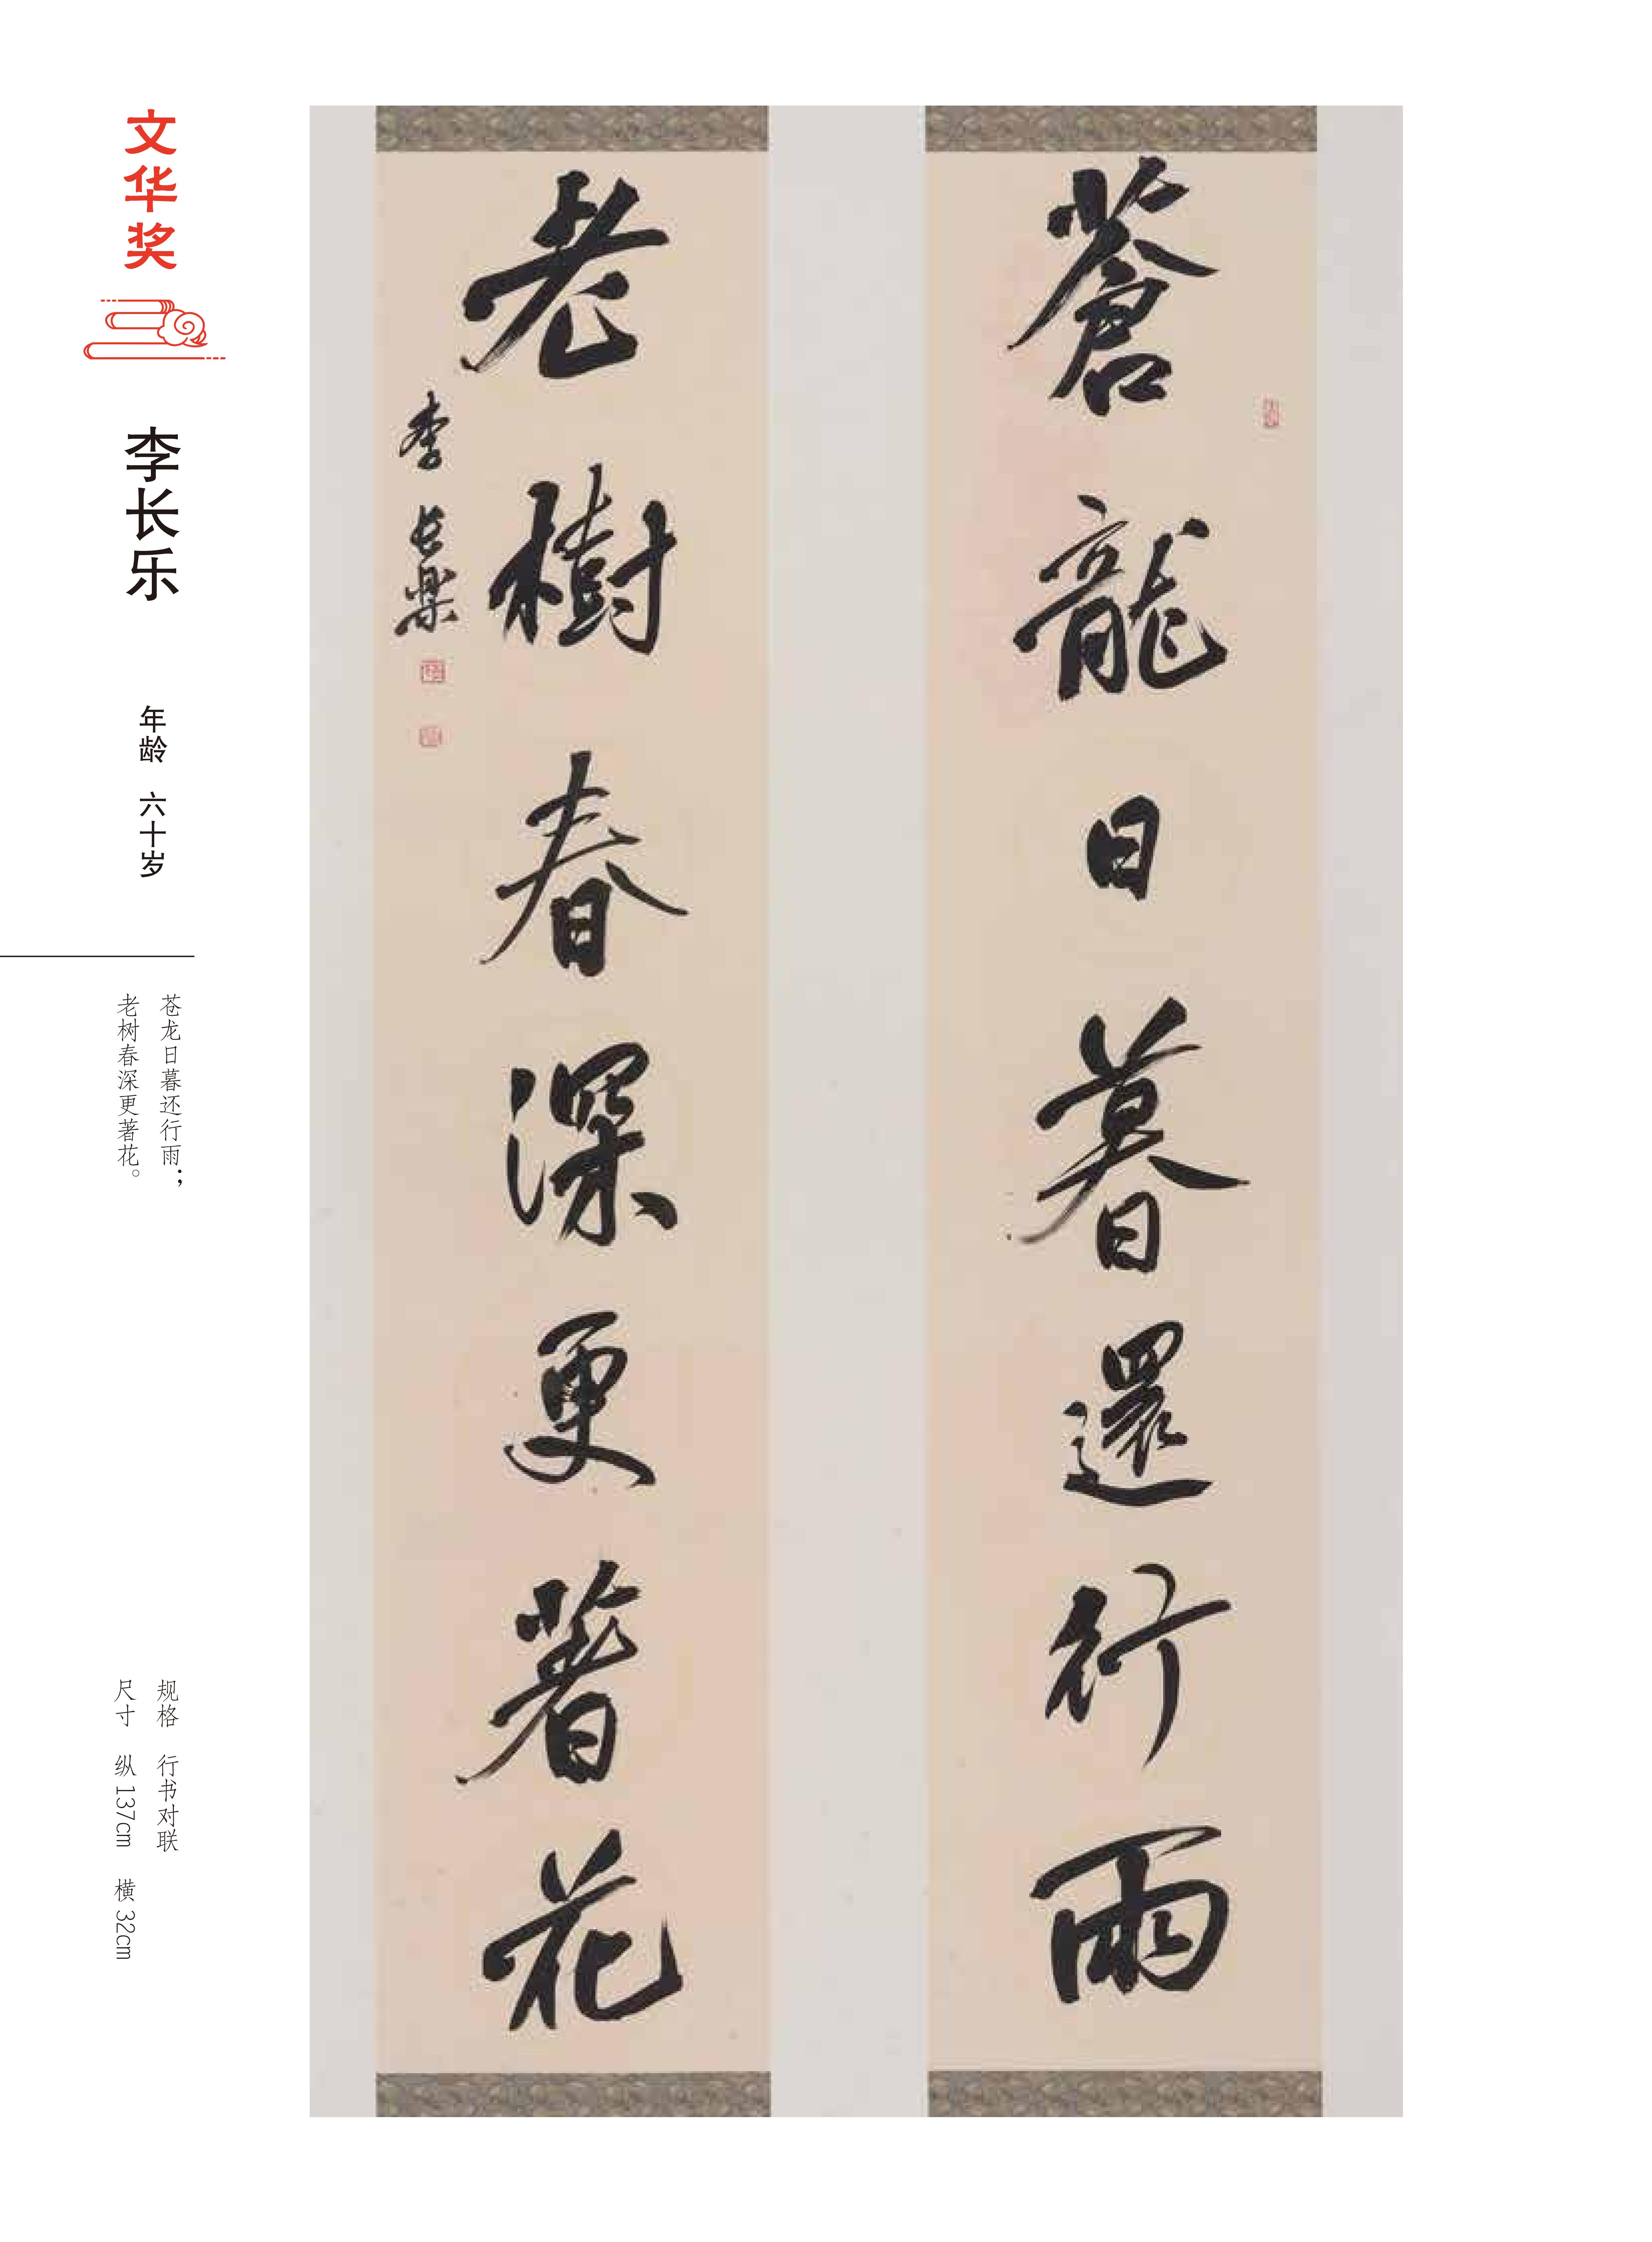 文华奖
李长乐
年龄 六十岁
苍龙日暮还行雨；
老树春深更著花。
规格 行书对联
尺寸 纵137cm 横32cm
蒼龍日暮還行雨
老樹春深更著花
李長樂